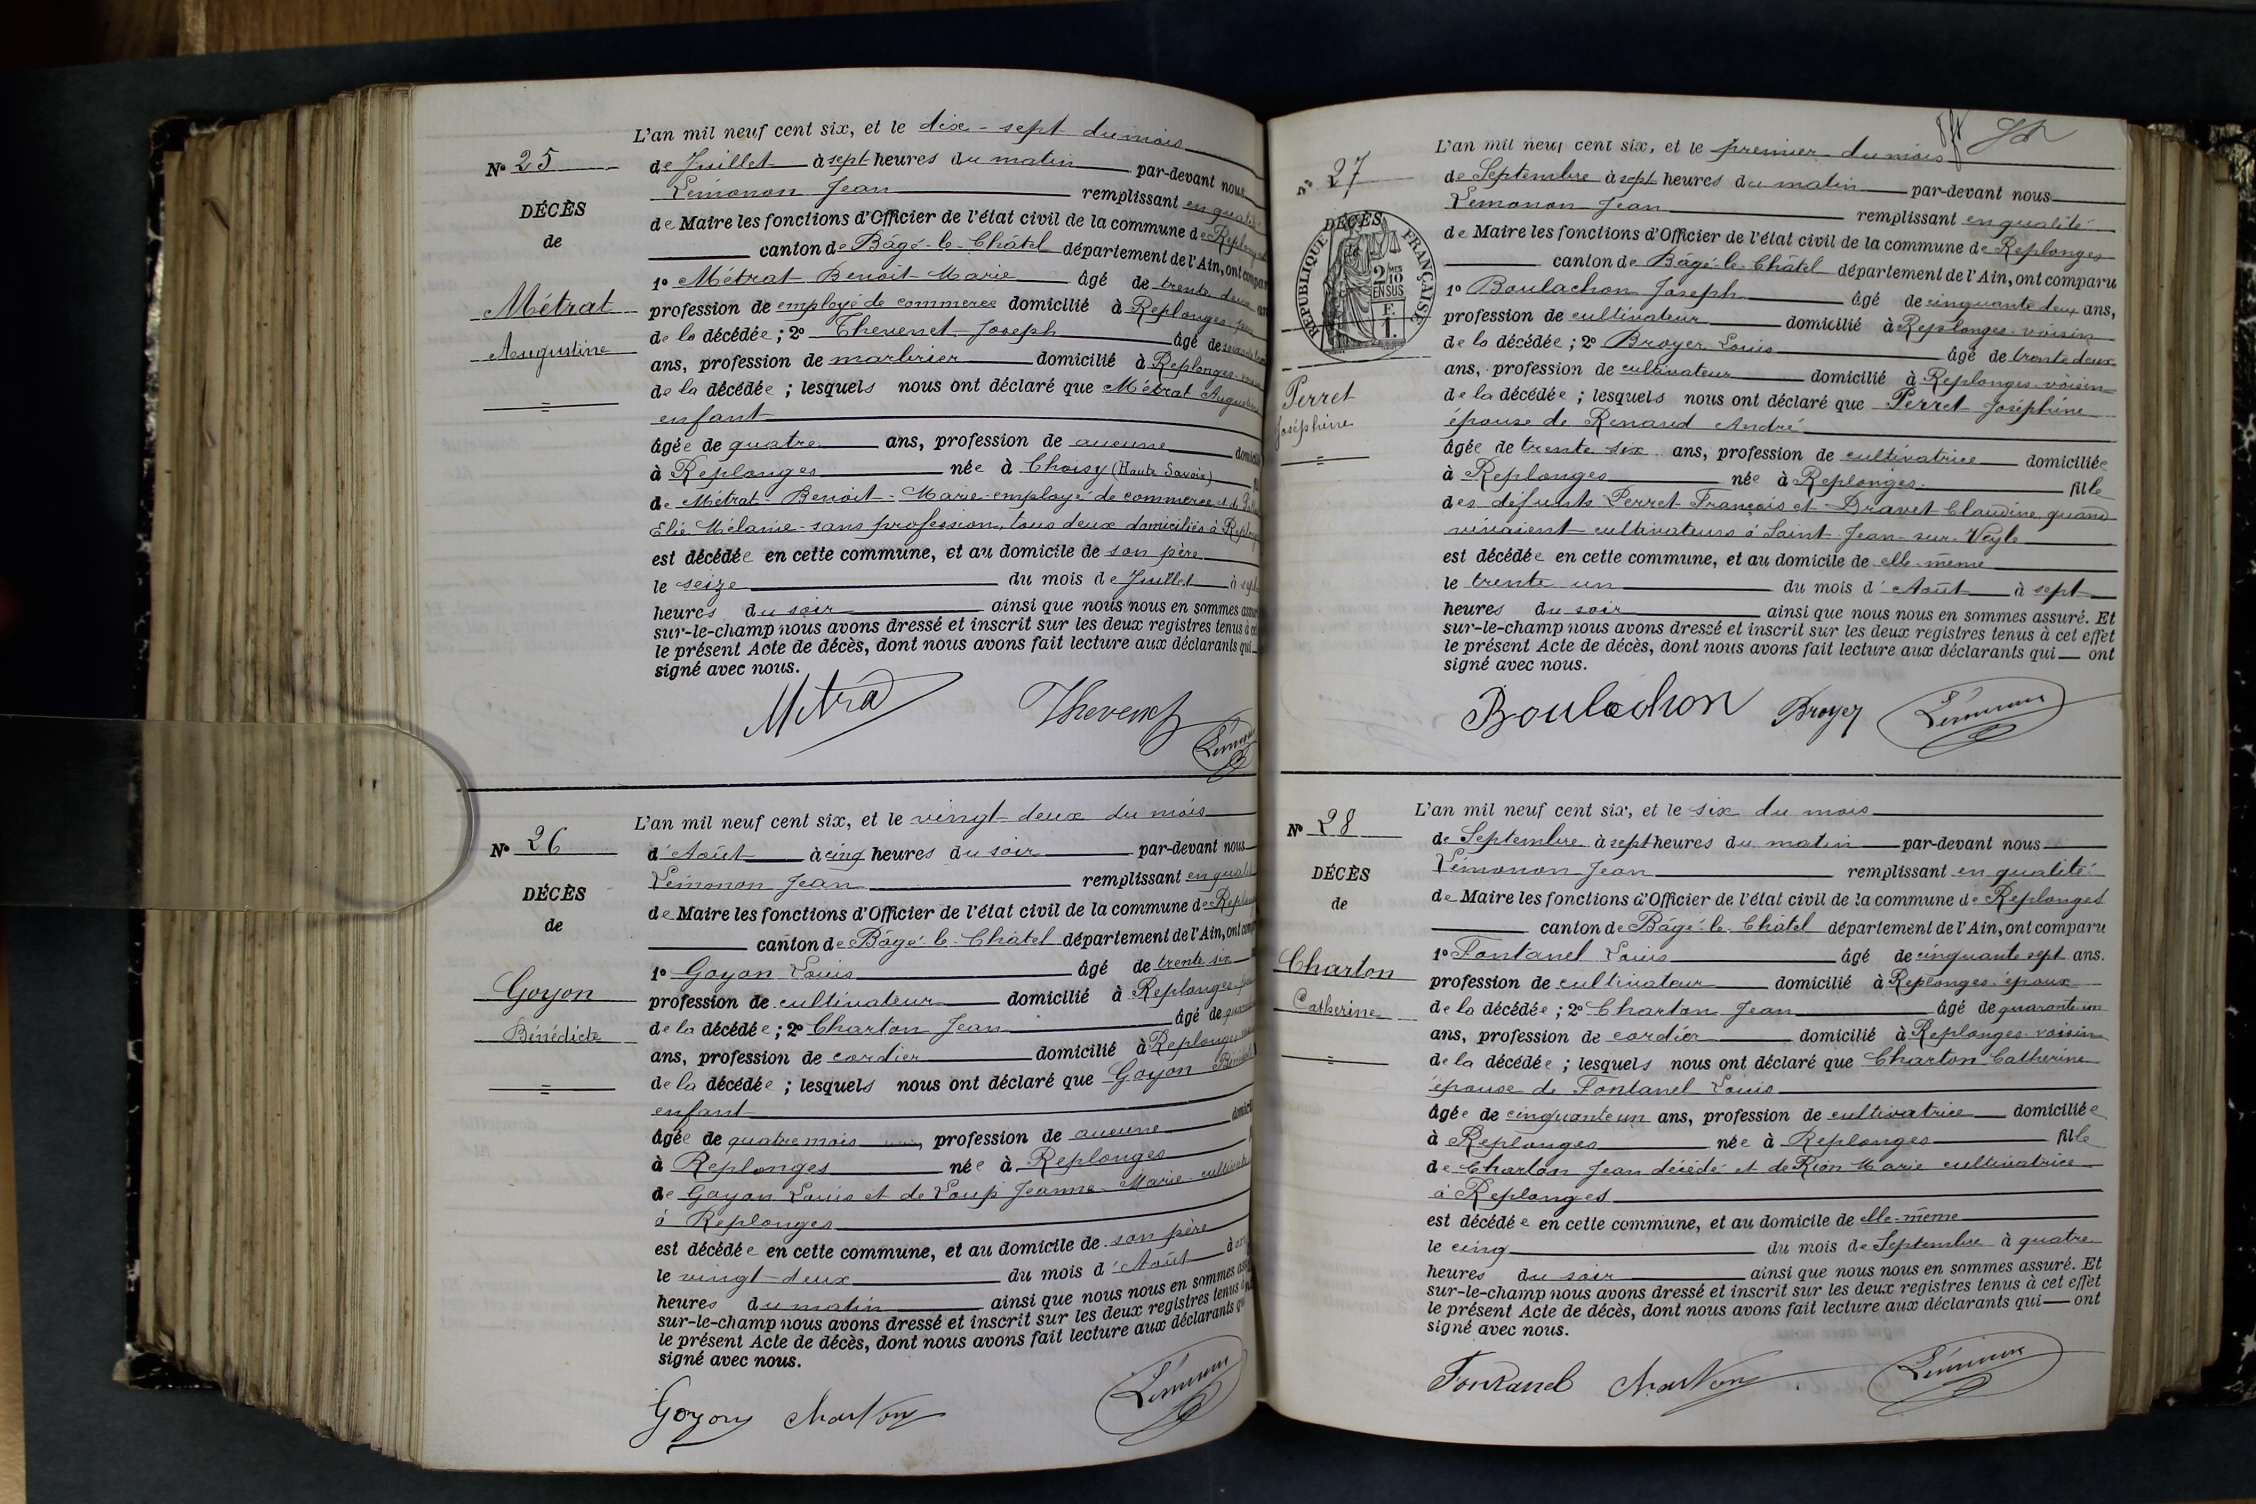 L'an mil neuf cent six, et le dix-sept du mois
N° 25
de Juillet à sept heures du matin par-devant nous
Lémonon Jean remplissant en qualité
DÉCÈS
de Maire les fonctions d'Officier de l'état civil de la commune de Replonges
de
canton de Bâgé-le-Châtel département de l'Ain, ont comparu
1° Métrat Benoit-Marie âgé de trente deux ans
Métrat
profession de employé de commerce domicilié à Replonges père
Augustine
de la décédée ; 2° Thevenet Joseph âgé de
ans, profession de marbrier domicilié à Replonges voisin
de la décédée ; lesquels nous ont déclaré que Métrat Augustine
enfant
âgée de quatre ans, profession de aucune
à Replonges née à Choisy (Haute Savoie)
de Métrat Benoit-Marie employé de commerce et de
Elie Mélanie sans profession, tous deux domiciliés à Replonges
est décédée en cette commune, et au domicile de son père
le seize du mois de Juillet à sept
heures du soir ainsi que nous nous en sommes assuré
sur-le-champ nous avons dressé et inscrit sur les deux registres tenus à cet
le présent Acte de décès, dont nous avons fait lecture aux déclarants qui
signé avec nous.
Métrat Thevenet Lémonon
L'an mil neuf cent six, et le vingt-deux du mois
N° 26
d'Août à cinq heures du soir par-devant nous
Lémonon Jean remplissant en qualité
DÉCÈS
de Maire les fonctions d'Officier de l'état civil de la commune de Replonges
de
canton de Bâgé-le-Châtel département de l'Ain, ont comparu
1° Goyon Louis âgé de trente six
Goyon
profession de cultivateur domicilié à Replonges père
Bénédicte
de la décédée ; 2° Charton Jean âgé de
ans, profession de cordier domicilié à Replonges
de la décédée ; lesquels nous ont déclaré que Goyon Bénédicte
enfant
âgée de quatre mois, profession de aucune
à Replonges née à Replonges
de Goyon Louis et de Loup Jeanne-Marie cultivateurs
à Replonges
est décédée en cette commune, et au domicile de son père
le vingt-deux du mois d'Août à
heures du matin ainsi que nous nous en sommes
sur-le-champ nous avons dressé et inscrit sur les deux registres tenus
le présent Acte de décès, dont nous avons fait lecture aux déclarants qui
signé avec nous.
Goyon Charton Lémonon
L'an mil neuf cent six, et le premier du mois
N° 27
de Septembre à sept heures du matin par-devant nous
Lémonon Jean remplissant en qualité
DÉCÈS
RÉPUBLIQUE FRANÇAISE
2 MES 10 EN SUS
F. 1.
de Maire les fonctions d'Officier de l'état civil de la commune de Replonges
canton de Bâgé-le-Châtel département de l'Ain, ont comparu
1° Boulachon Joseph âgé de cinquante deux ans,
profession de cultivateur domicilié à Replonges voisin
de la décédée ; 2° Broyer Louis âgé de trente deux
ans, profession de cultivateur domicilié à Replonges voisin
Perret
Joséphine
de la décédée ; lesquels nous ont déclaré que Perret Joséphine
épouse de Renaud André
âgée de trente six ans, profession de cultivatrice domiciliée
à Replonges née à Replonges fille
des défunts Perret François et Dravet Claudine, quand
vivaient cultivateurs à Saint-Jean-sur-Veyle
est décédée en cette commune, et au domicile de elle-même
le trente un du mois d'Août à sept
heures du soir ainsi que nous nous en sommes assuré. Et
sur-le-champ nous avons dressé et inscrit sur les deux registres tenus à cet effet
le présent Acte de décès, dont nous avons fait lecture aux déclarants qui ont
signé avec nous.
Boulachon Broyer Lémonon
L'an mil neuf cent six, et le six du mois
N° 28
de Septembre à sept heures du matin par-devant nous
Lémonon Jean remplissant en qualité
DÉCÈS
de Maire les fonctions d'Officier de l'état civil de la commune de Replonges
de
canton de Bâgé-le-Châtel département de l'Ain, ont comparu
1° Fontanel Louis âgé de cinquante sept ans.
Charton
profession de cultivateur domicilié à Replonges époux
Catherine
de la décédée ; 2° Charton Jean âgé de quarante un
ans, profession de cordier domicilié à Replonges voisin
de la décédée ; lesquels nous ont déclaré que Charton Catherine
épouse de Fontanel Louis
âgée de cinquante un ans, profession de cultivatrice domiciliée
à Replonges née à Replonges fille
de Charton Jean décédé et de Rion Marie cultivatrice
à Replonges
est décédée en cette commune, et au domicile de elle-même
le cinq du mois de Septembre à quatre
heures du soir ainsi que nous nous en sommes assuré. Et
sur-le-champ nous avons dressé et inscrit sur les deux registres tenus à cet effet
le présent Acte de décès, dont nous avons fait lecture aux déclarants qui ont
signé avec nous.
Fontanel Charton Lémonon